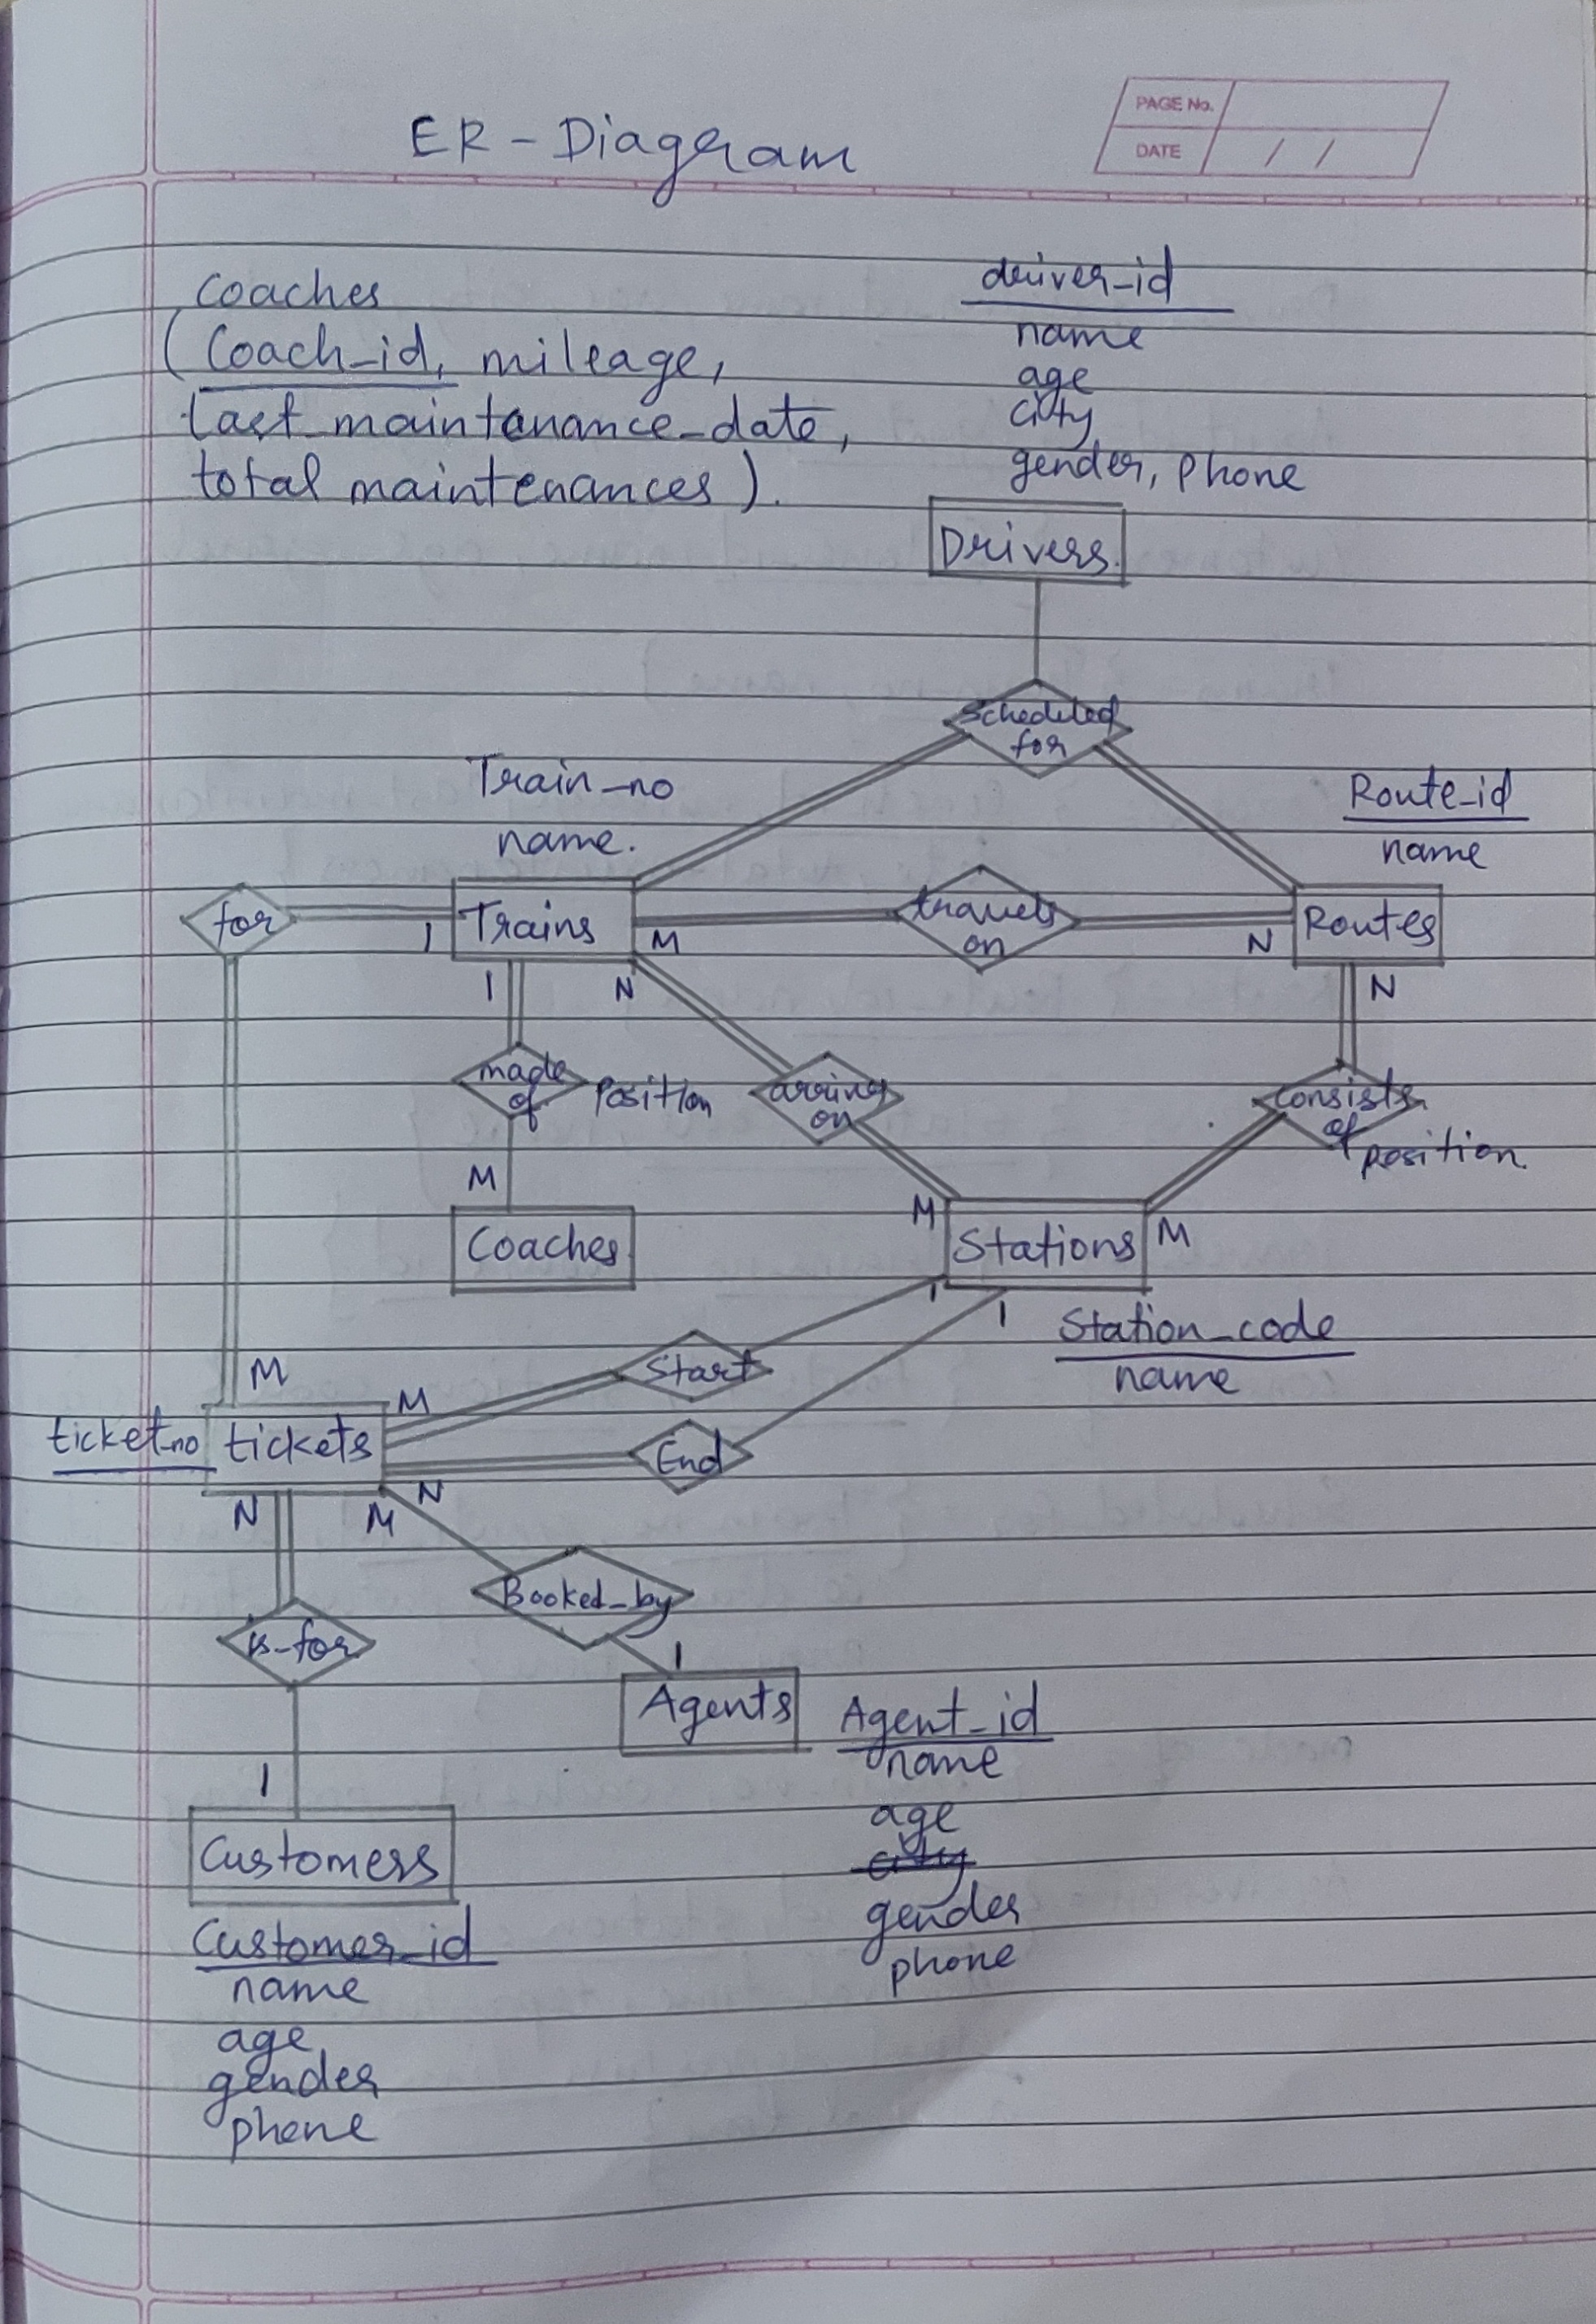 PAGE No.
DATE / /
ER - Diagram
Coaches
(Coach_id, mileage,
last_maintenance_date,
total maintenances).
driver_id
name
age
city
gender, phone
Drivers.
Scheduled
for
Train_no
name.
Route_id
name
for
1
Trains
M
travels
on
N
Routes
1
N
N
made
of
Position
arriving
on
consists
of
position.
M
M
M
Coaches
Stations
1
1
Station_code
name
Start
M
M
ticket_no
tickets
End
N
N
M
Booked_by
is-for
1
Agents
Agent_id
name
age
city
gender
phone
1
Customers
Customer_id
name
age
gender
phone